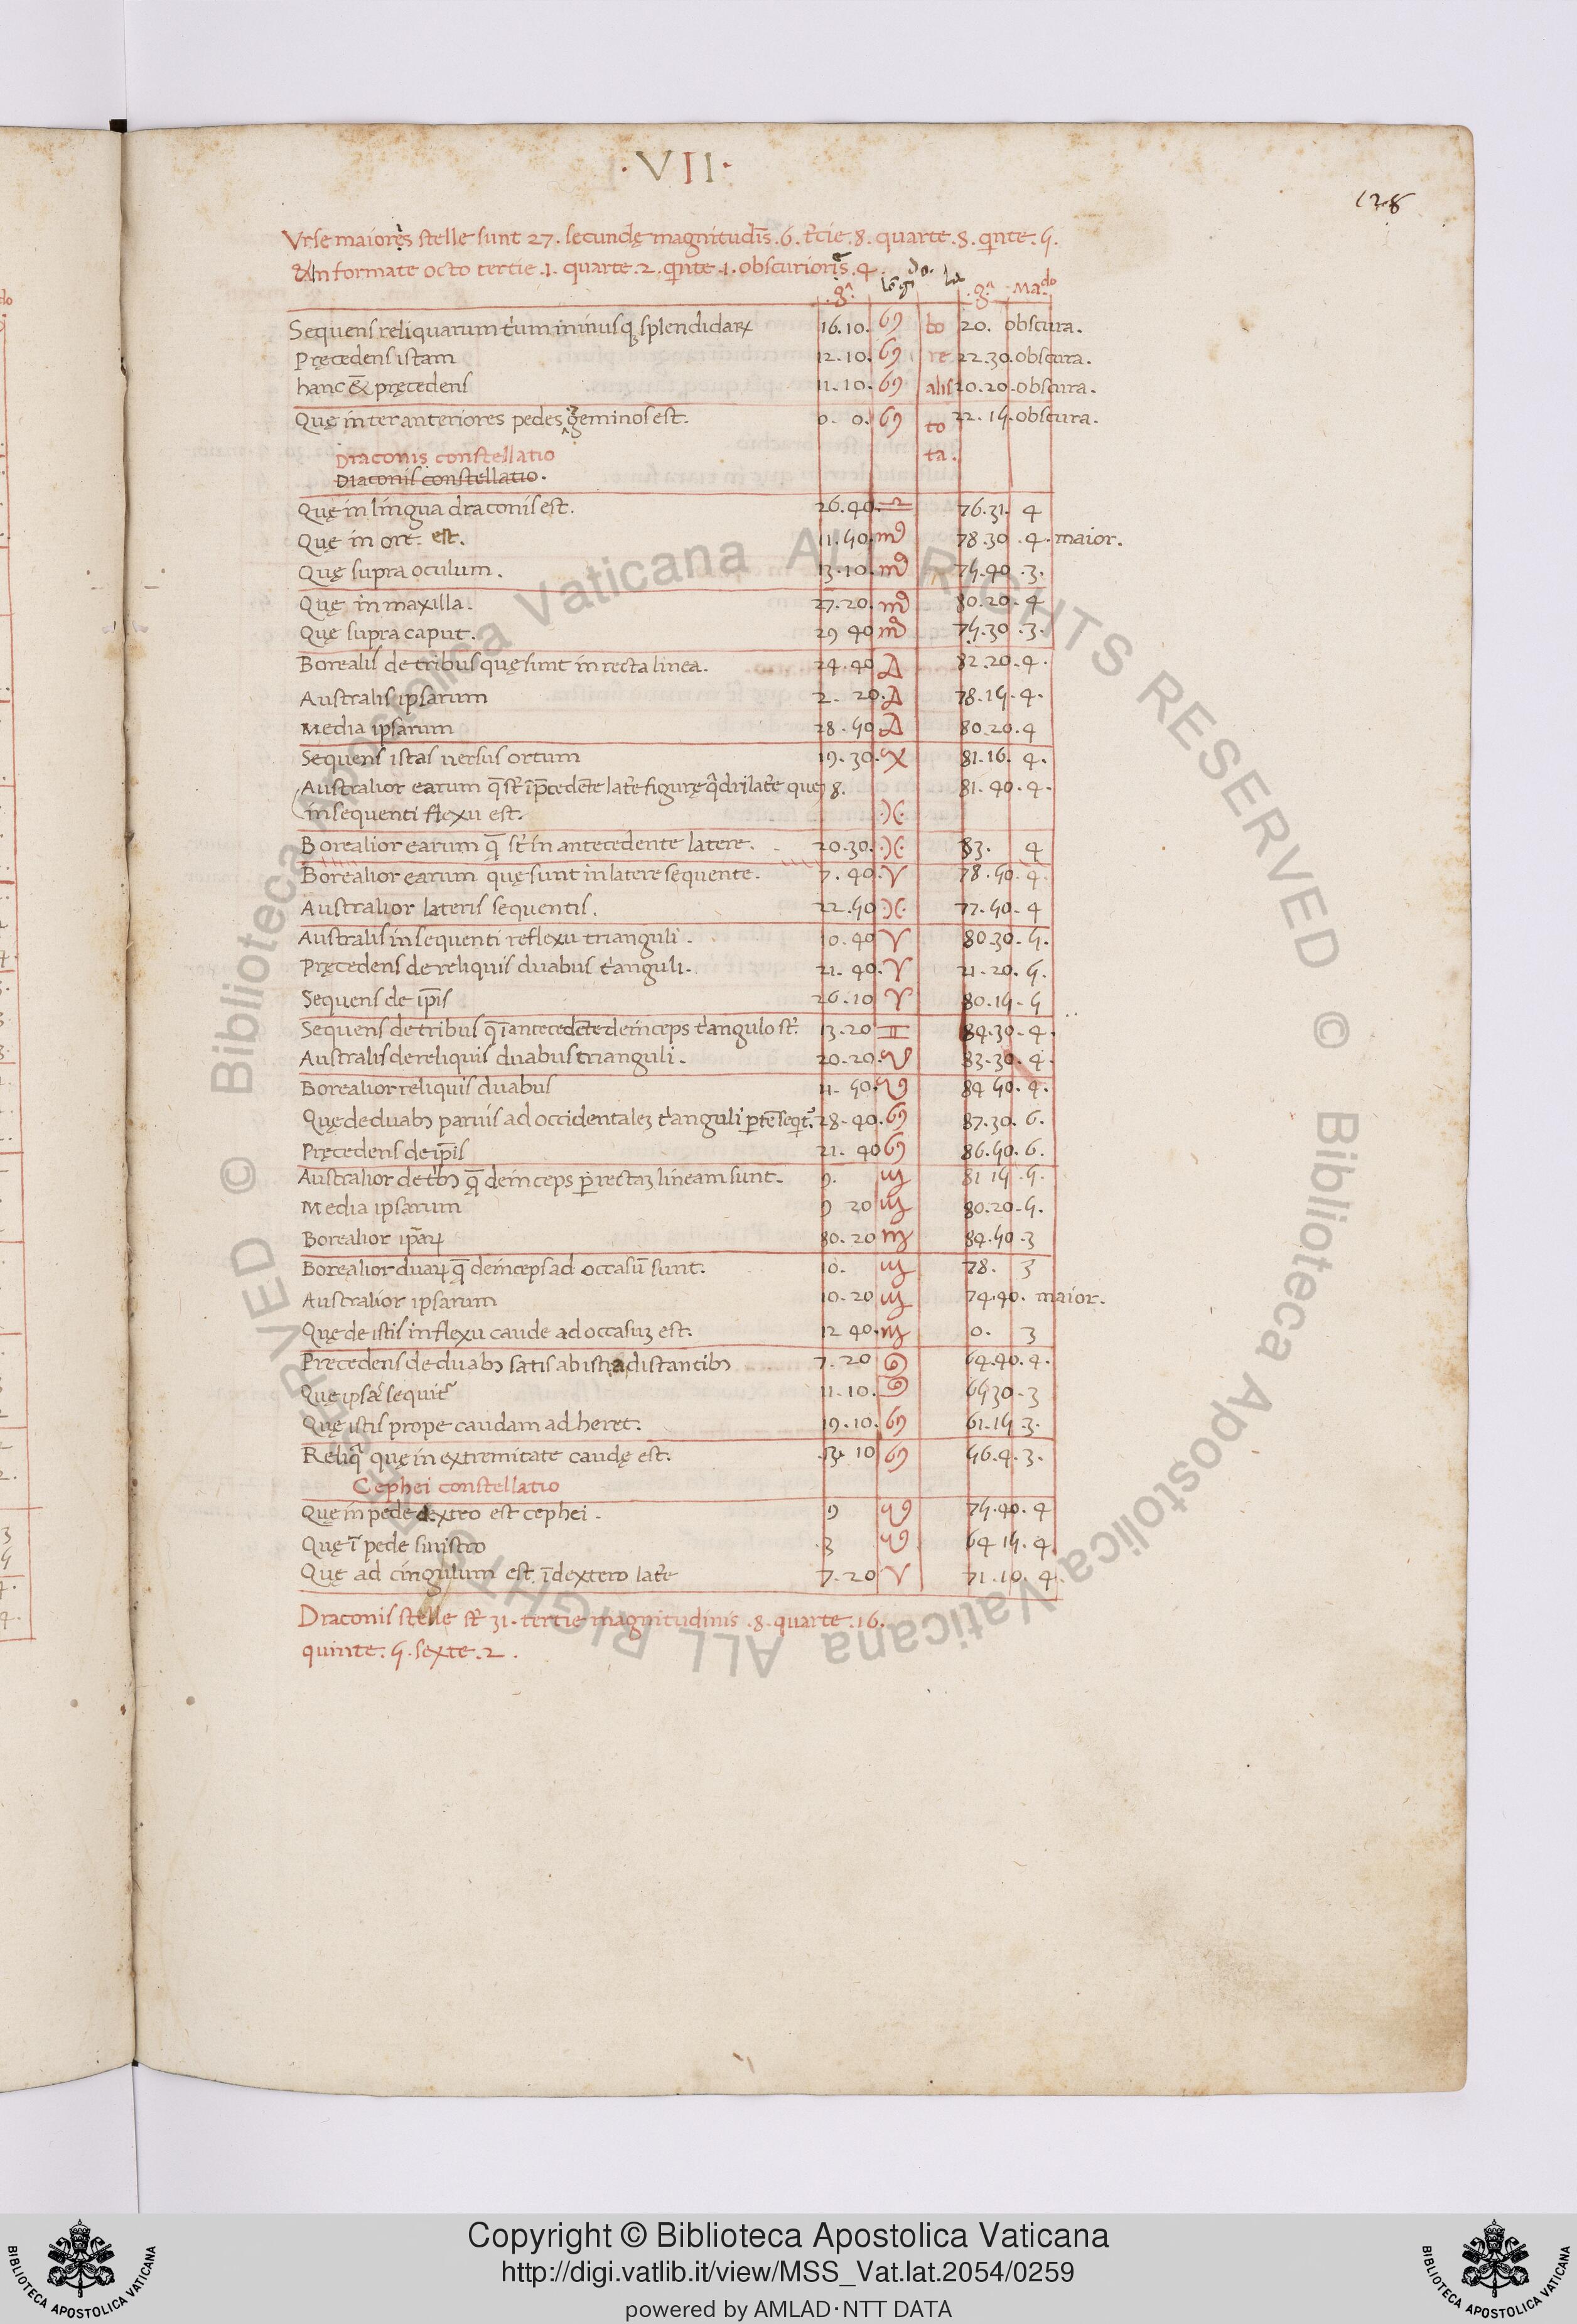 · VII ·
128
Vrse maioręs stelle sunt 27. secundę magnitudis̄ .6. t̄cie .8. quarte .8. qn̄te .5.
& Informate octo tertie .1. quarte .2. qn̄te .1. obscurioris .4.
.gª. gª. Mado
Sequens reliquarum t'um minusq; splendidarꝝ 16.10. ♋ bo 20. obscura.
Pręcedens istam 12.10. ♋ re 22.30. obscura.
hanc & pręcedens 11.10. ♋ alis 20.20. obscura.
Quę inter anteriores pedes & geminos est. 0. 0. ♋ to 22.15. obscura.
Draconis constellatio ta.
Draconis constellatio.
Quę in lingua draconis est. 26.40. ♎ 76.31. 4
Quę in ore est. 11.50. ♏ 78.30 .4. maior.
Quę supra oculum. 13.10. ♏ 75.40 .3.
Quę in maxilla. 27.20. ♏ 80.20. 4
Quę supra caput. 29 40 ♏ 75.30 .3.
Borealis de tribus quę sunt in recta linea. 24.40 ♐ 82.20.4.
Australis ipsarum 2. 20. ♐ 78.15.4.
Media ipsarum 28.50 ♐ 80.20.4
Sequens istas uersus ortum 19.30. ♑ 81.16. 4.
Australior earum q̄ st̄ ī p̄cedēte lat'e figurę qdrilat'e que 8. 81.40.4.
in sequenti flexu est. ♓
Borealior earum q̄ st̄ in antecedente latere. 20.30. ♓ 83. 4
Borealior earum quę sunt in latere sequente. 7.40. ♈ 78.50.4.
Australior lateris sequentis. 22.50 ♓ 77.50.4
Australis in sequenti reflexu trianguli. 10.40 ♈ 80.30.5.
Pręcedens de reliquis duabus t'anguli. 21.40. ♈ 21.20.5.
Sequens de ip̄is 26.10 ♈ 80.15.5
Sequens de tribus q̄ ī antecedēte deinceps t'angulo st̄. 13.20 ♊ 84.30.4.
Australis de reliquis duabus trianguli. 20.20. ♉ 83.30.4.
Borealior reliquis duabus 11.50. ♉ 84 50.4.
Quę de duabꝰ paruis ad occidentaleꝫ t'anguli p̄tē seqit̄. 28.40. ♋ 87.30.6.
Pręcedens de ip̄is 21.40 ♋ 86.50.6.
Australior de t'bꝰ q̄ deinceps p̄ rectaꝫ lineam sunt. 9. ♍ 81 15 .5.
Media ipsarum 9 20 ♍ 80.20.5.
Borealior ip̄aꝝ 80.20 ♍ 84.50.3
Borealior duaꝝ q̄ deinceps ad occasū sunt. 10. ♍ 78. 3
Australior ipsarum 10.20 ♍ 74.40. maior.
Quę de istis in flexu caude ad occasuꝫ est. 12 40. ♍ 0. 3
Pręcedens de duabꝰ satis ab ista distantibꝰ 7.20 ♌ 64.40.4.
Quę ipsā sequit' 11.10. ♌ 65 30.3
Quę istis prope caudam adheret. 19.10. ♋ 61.15 3.
Reliq̄ quę in extremitate caudę est. 13.10 ♋ 56.4.3.
Cephei constellatio
Quę in pede dextro est cephei. 9 ♉ 75.40.4
Quę ī pede sinistro 3 ♉ 64 15.4.
Quę ad cingulum est ī dextero lat'e 7.20 ♈ 71.10.4.
Draconis stelle st̄ 31. tertie magnitudinis .8. quarte .16.
quinte .5. sexte .2.
Copyright © Biblioteca Apostolica Vaticana
http://digi.vatlib.it/view/MSS_Vat.lat.2054/0259
powered by AMLAD·NTT DATA
BIBLIOTECA APOSTOLICA VATICANA
BIBLIOTECA APOSTOLICA VATICANA
© Biblioteca Apostolica Vaticana ALL RIGHTS RESERVED © Biblioteca Apostolica Vaticana ALL RIGHTS RESERVED